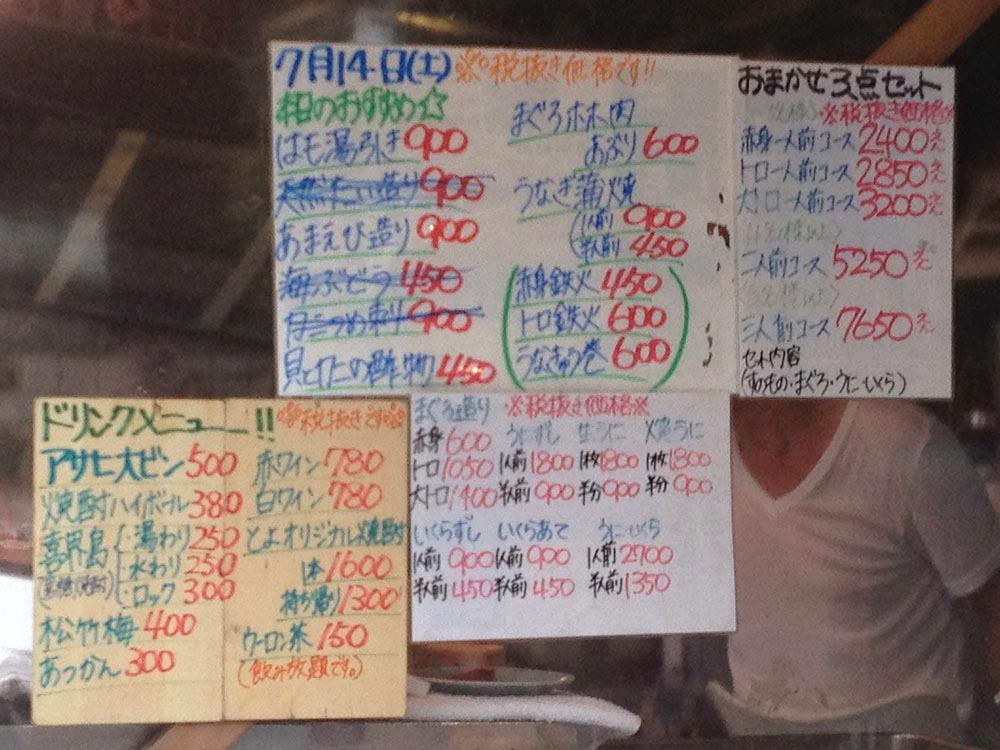 7月14日(土) ※税抜き価格です!!
本日のおすすめ☆
はも湯引き 900
天然たい造り 900
あまえび造り 900
海ぶどう 450
900
貝と の酢の物 450
まぐろホホ肉
あぶり 600
うなぎ蒲焼
1人前 900
半人前 450
赤身鉄火 450
トロ鉄火 600
うなきゅう巻 600
おまかせ3点セット
※税抜き価格※
赤身一人前コース 2400
トロ一人前コース 2850
大トロ一人前コース 3200
二人前コース 5250
三人前コース 7650
セット内容
(まぐろ・うに・いくら)
ドリンクメニュー!!
※税抜きです※
アサヒ大ビン 500
焼酎ハイボール 380
喜界島 湯わり 250
水わり 250
ロック 300
松竹梅 400
あつかん 300
赤ワイン 780
白ワイン 780
とよオリジナル焼酎
1本 1600
持ち帰り 1300
ウーロン茶 150
(飲み放題です。)
まぐろ造り ※税抜き価格※
赤身 600
トロ 1050
大トロ 1400
うにずし
1人前 1800
半人前 900
生うに
1枚 1800
半分 900
焼うに
1枚 1800
半分 900
いくらずし
1人前 900
半人前 450
いくらあて
1人前 900
半人前 450
うにいくら
1人前 2700
半人前 1350